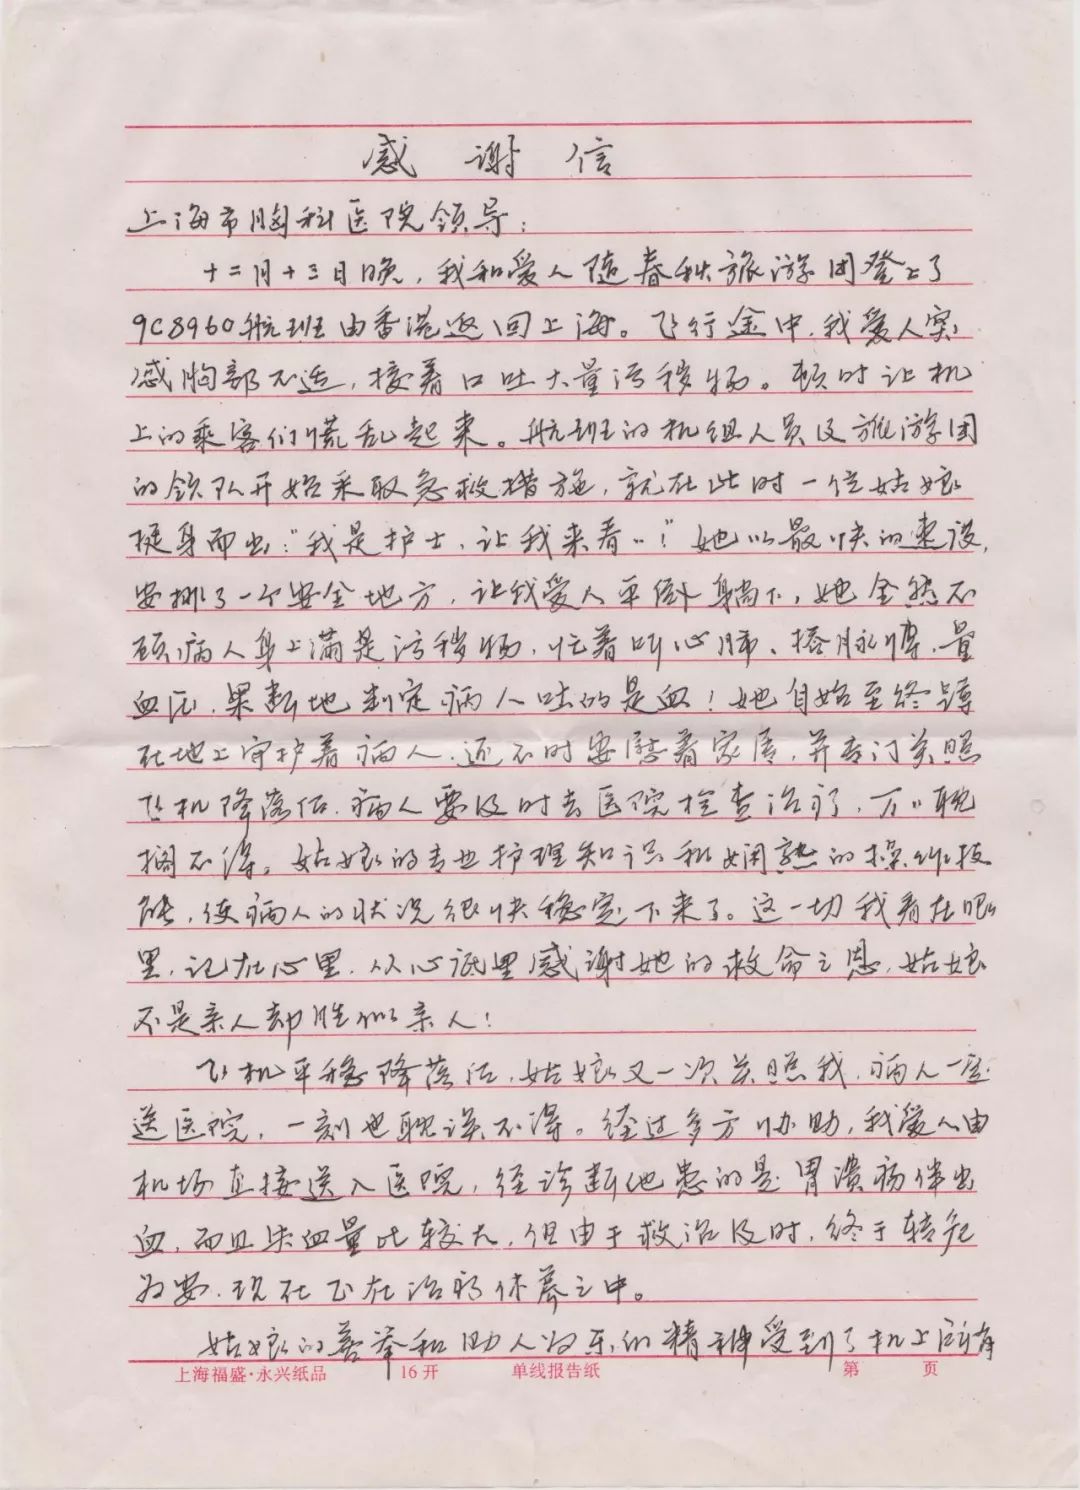 感谢信
上海市胸科医院领导：
十二月十三日晚，我和爱人随春秋旅游团登上了
9C8960航班由香港返回上海。飞行途中，我爱人突
感胸部不适，接着口吐大量污秽物。顿时让机
上的乘客们慌乱起来。航班的机组人员及旅游团
的领队开始采取急救措施，就在此时一位姑娘
挺身而出："我是护士，让我来看看！"她以最快的速度，
安排了一个安全地方，让我爱人平卧躺下，她全然不
顾病人身上满是污秽物，忙着听心肺、搭脉搏、量
血压，果断地判定病人吐的是血！她自始至终蹲
在地上守护着病人，还不时安慰着家属，并专门关照
飞机降落后，病人要及时去医院检查治疗，万万耽
搁不得。姑娘的专业护理知识和娴熟的操作技
能，使病人的状况很快稳定下来了。这一切我看在眼
里，记在心里，从心底里感谢她的救命之恩，姑娘
不是亲人却胜似亲人！
飞机平稳降落后，姑娘又一次关照我，病人一定
送医院，一刻也耽误不得。经过多方协助，我爱人由
机场直接送入医院，经诊断他患的是胃溃疡伴出
血，而且失血量比较大，但由于救治及时，终于转危
为安，现在正在治疗休养之中。
姑娘的善举和助人为乐的精神受到了机上所有
上海福盛·永兴纸品 16开 单线报告纸 第 页